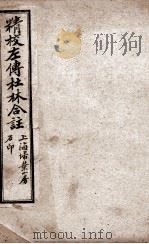 精校左傳杜林合註
上海埽葉山房
石印